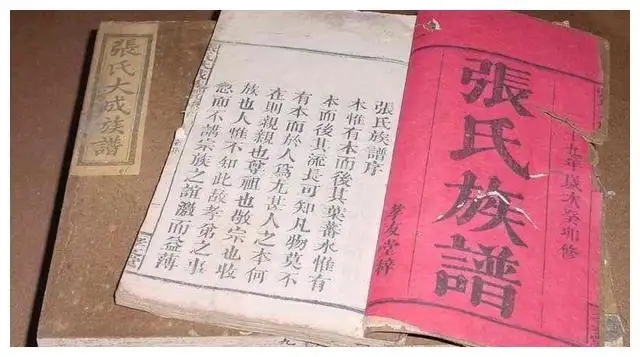 年歲次癸卯修
張氏族譜
孝友堂梓
張氏族譜序
木惟有本而後其葉蕃水惟有
本而後其流長可知凡物莫不
有本而於人爲尤甚人之本何
在則親親也尊祖也敬宗也收
族也人惟不知此故孝弟之事
怠而不講宗族之誼澈而益薄
張氏大成族譜